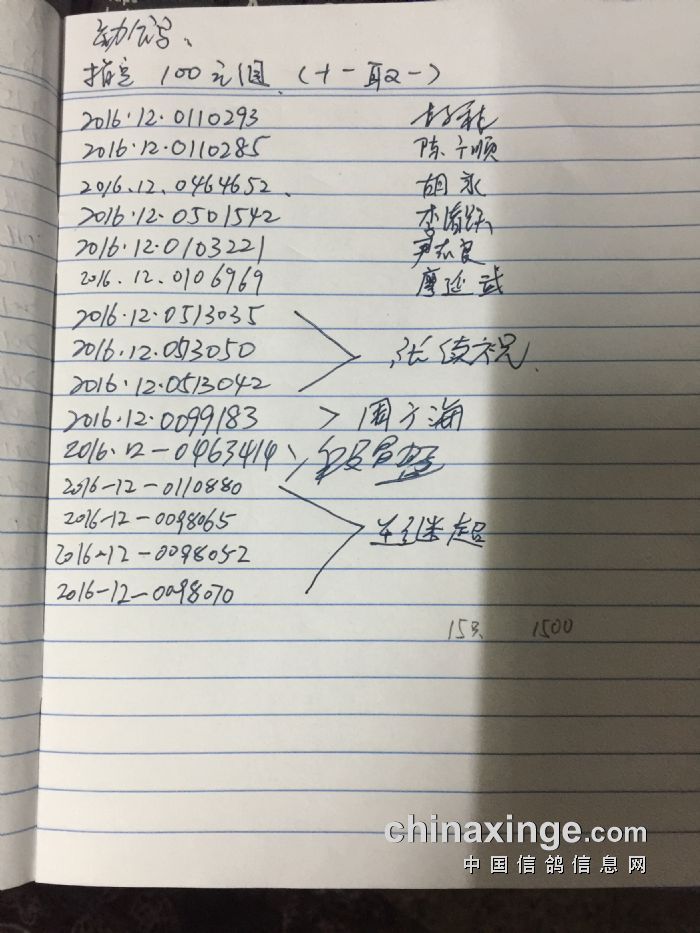 指定 100元组 (十一取一)
2016.12.0110293
2016.12.0110285 陈广顺
2016.12.0464652. 胡永
2016.12.0501542 李
2016.12.0103221 尹志良
2016.12.0106969 廖延武
2016.12.0513035
2016.12.053050 张德祝
2016.12.0513042
2016.12.0099183 > 周广海
2016.12-0463414
2016-12-0110880
2016-12-0098065 继超
2016-12-0098052
2016-12-0098070
15羽 1500
chinaxinge.com
中国信鸽信息网